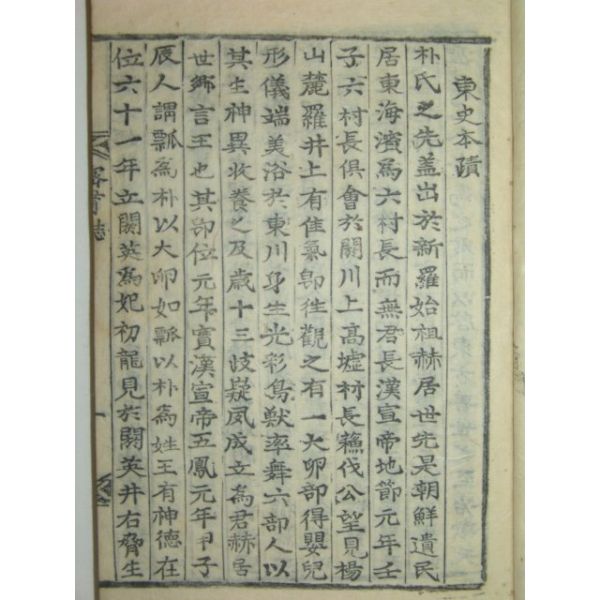 東史本蹟
朴氏之先盖出於新羅始祖赫居世先是朝鮮遺民
居東海濱為六村長而無君長漢宣帝地節元年壬
子六村長俱會於閼川上高墟村長蘓伐公望見楊
山麓羅井上有佳氣即徃觀之有一大卵部得嬰兒
形儀端美浴於東川身生光彩鳥獸率舞六部人以
其生神異收養之及歲十三歧疑夙成立為君赫居
世鄉言王也其即位元年實漢宣帝五鳳元年甲子
辰人謂瓢為朴以大卵如瓢以朴為姓王有神德在
位六十一年立閼英為妃初龍見於閼英井右脅生
一